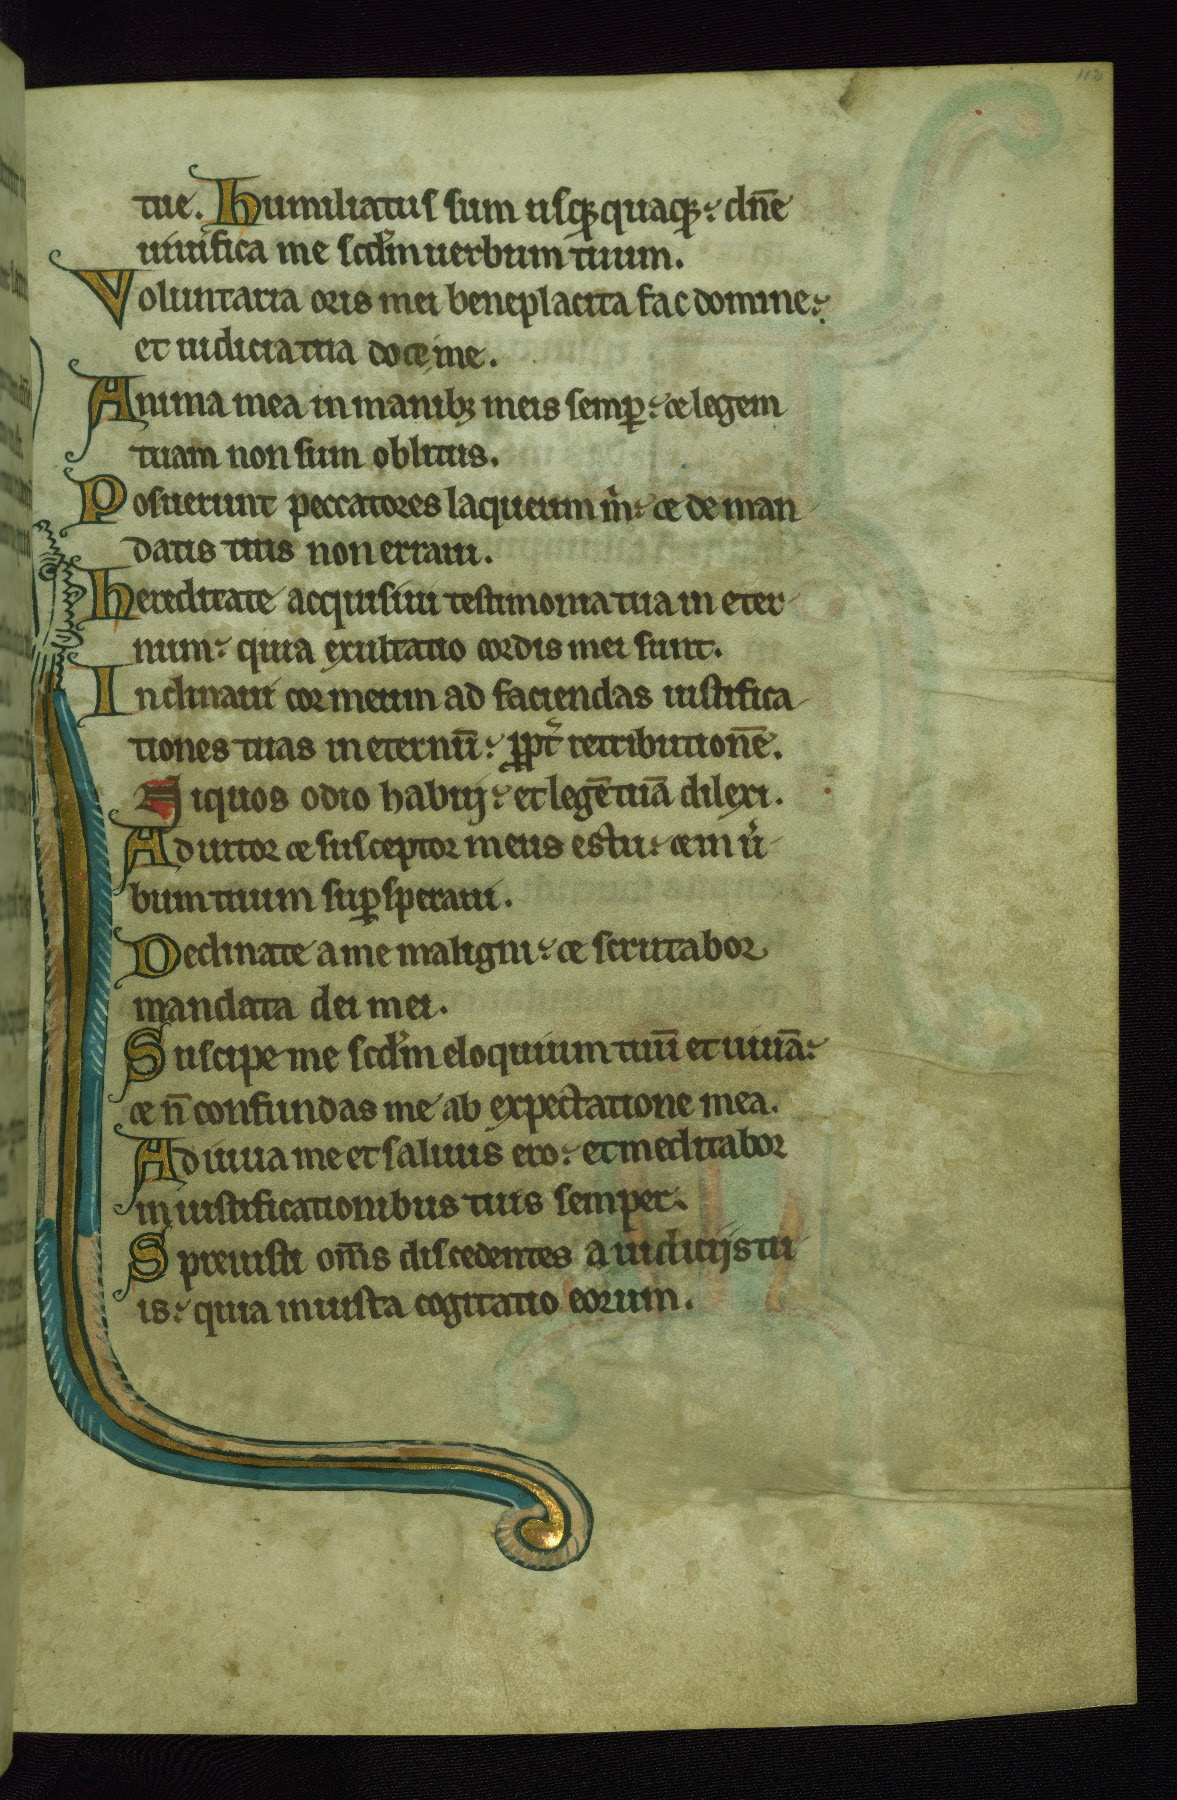 tue. Humiliatus sum usq̄quaq̄: dn̄e
uiuifica me scd̄m uerbum tuum.
Voluntaria oris mei beneplacita fac domine:
et iudicia tua doce me.
Anima mea in manibꝫ meis semꝑ: ⁊ legem
tuam non sum oblitus.
Posuerunt peccatores laqueum m̄: ⁊ de man
datis tuis non erraui.
Hereditate acquisiui testimonia tua in eter
num: quia exultatio cordis mei sunt.
Inclinaui cor meum ad faciendas iustifica
tiones tuas in eternū: ꝓpt̄ retributionē.
Iniquos odio habui: et legē tuā dilexi.
Adiutor ⁊ susceptor meus es tu: ⁊ in ū
bum tuum suꝑsperaui.
Declinate a me maligni: ⁊ scrutabor
mandata dei mei.
Suscipe me scd̄m eloquium tuū et uiuā:
⁊ n̄ confundas me ab expectatione mea.
Adiuua me et saluus ero: et meditabor
in iustificationibus tuis semper.
Spreuisti om̄s discedentes a iudicijs tu
is: quia iniusta cogitatio eorum.